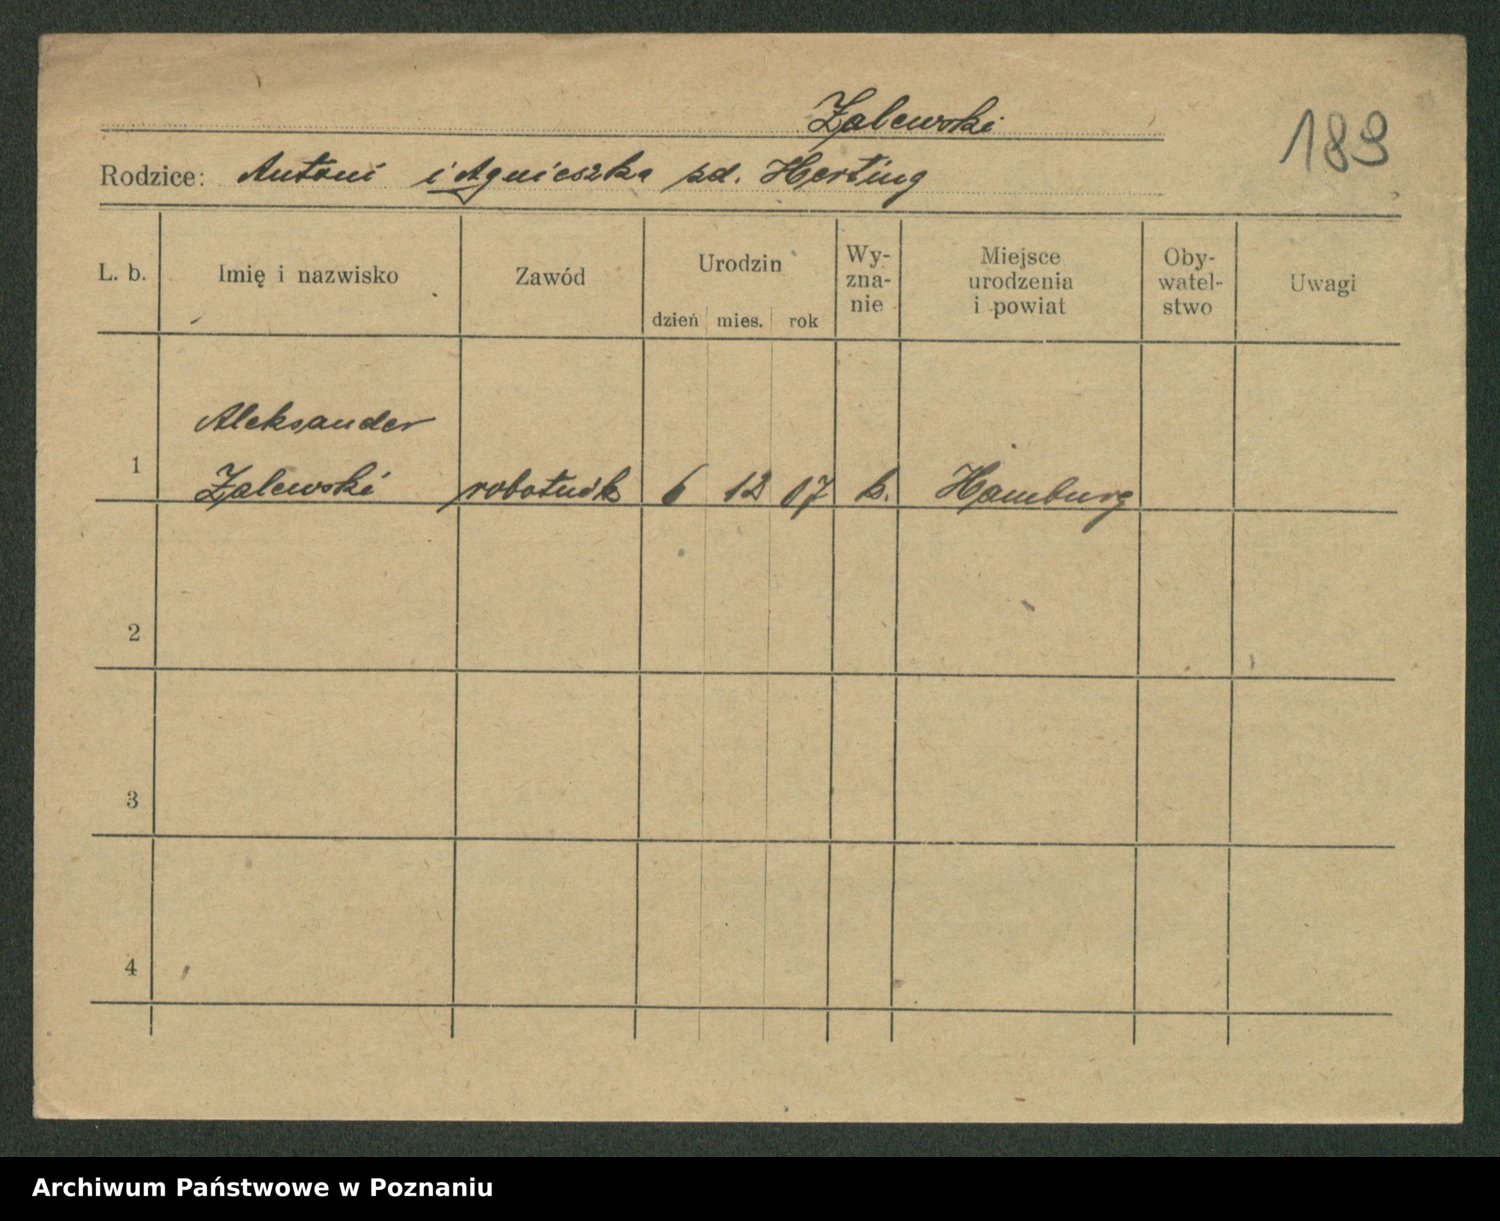 Zalewski
189
Rodzice: Antoni i Agnieszka zd. Herting
L. b. Imię i nazwisko Zawód Urodzin dzień mies. rok Wy-zna-nie Miejsce urodzenia i powiat Oby-watel-stwo Uwagi
Aleksander
1 Zalewski robotnik 6 12 07 k. Hamburg
2
3
4
Archiwum Państwowe w Poznaniu